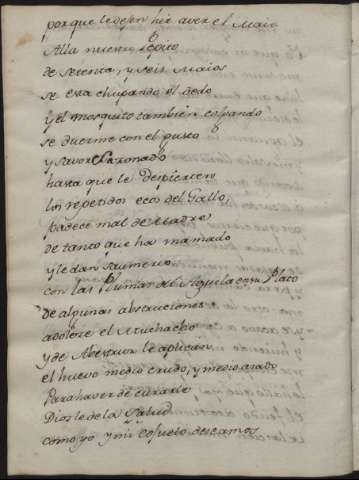 porque le dejen hir a ver el Maio
Alla nuestro
de Setenta, y seis Maios
se esta chupando el dedo
y el mosquito tambien
se duerme con el gusto
y savor
hasta que le Despierten
los repetidos eco del Gallo,
padece mal de Madre
de tanto que ha mamado
y le dan
con las Plumas de Aguila en un Plato
de algunas abstruciones
adolece el Muchacho
y de Abestruz le aplican
el huevo medio crudo, y medio asado
Para haver de curarle
Dios le de la Salud
como yo y mi deseamos